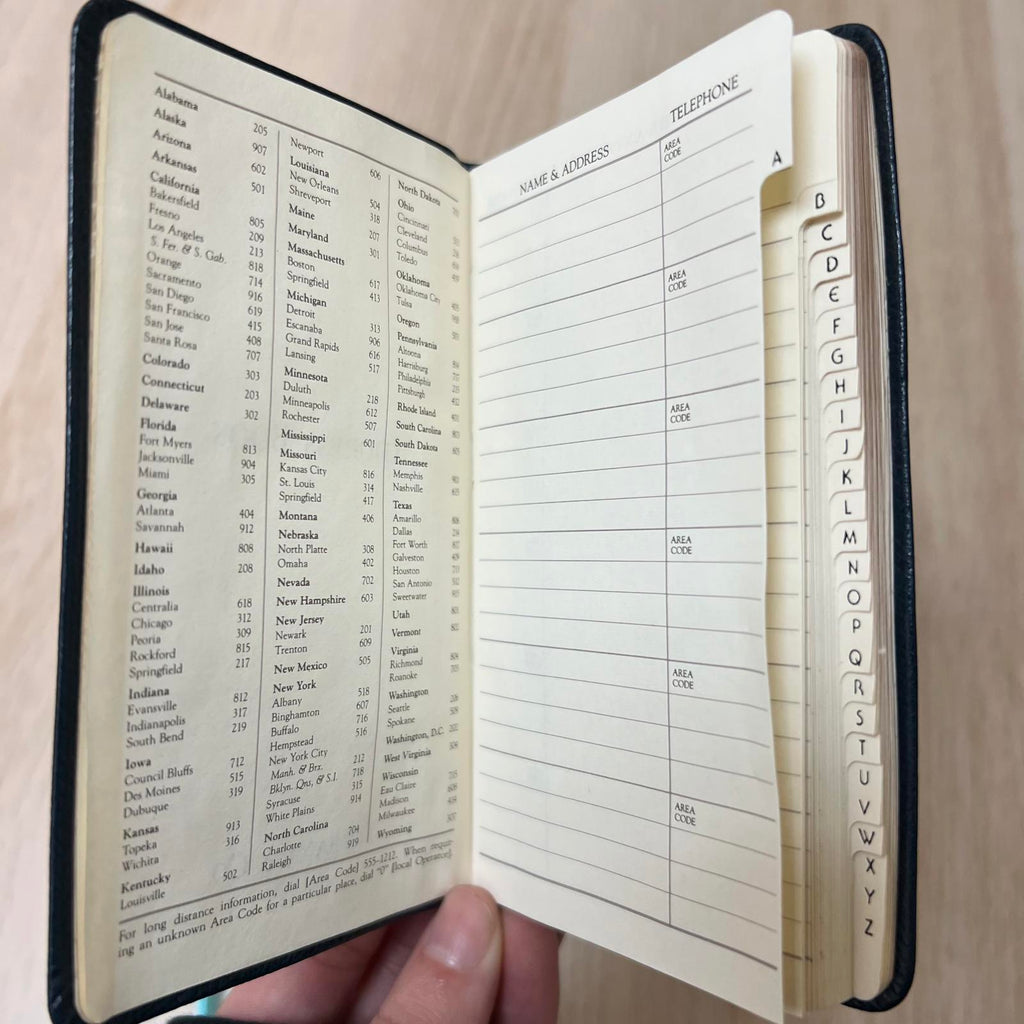 Alabama 205
Alaska 907
Arizona 602
Arkansas 501
California
Bakersfield 805
Fresno 209
Los Angeles 213
S. Fer. & S. Gab. 818
Orange 714
Sacramento 916
San Diego 619
San Francisco 415
San Jose 408
Santa Rosa 707
Colorado 303
Connecticut 203
Delaware 302
Florida
Fort Myers 813
Jacksonville 904
Miami 305
Georgia
Atlanta 404
Savannah 912
Hawaii 808
Idaho 208
Illinois
Centralia 618
Chicago 312
Peoria 309
Rockford 815
Springfield 217
Indiana
Evansville 812
Indianapolis 317
South Bend 219
Iowa
Council Bluffs 712
Des Moines 515
Dubuque 319
Kansas
Topeka 913
Wichita 316
Kentucky
Louisville 502
Newport 606
Louisiana
New Orleans 504
Shreveport 318
Maine 207
Maryland 301
Massachusetts
Boston 617
Springfield 413
Michigan
Detroit 313
Escanaba 906
Grand Rapids 616
Lansing 517
Minnesota
Duluth 218
Minneapolis 612
Rochester 507
Mississippi 601
Missouri
Kansas City 816
St. Louis 314
Springfield 417
Montana 406
Nebraska
North Platte 308
Omaha 402
Nevada 702
New Hampshire 603
New Jersey
Newark 201
Trenton 609
New Mexico 505
New York
Albany 518
Binghamton 607
Buffalo 716
Hempstead 516
New York City
Manh. & Brx. 212
Bklyn. Qns, & S.I. 718
Syracuse 315
White Plains 914
North Carolina
Charlotte 704
Raleigh 919
North Dakota
Ohio
Cincinnati
Cleveland
Columbus
Toledo
Oklahoma
Oklahoma City
Tulsa
Oregon
Pennsylvania
Altoona
Harrisburg
Philadelphia
Pittsburgh
Rhode Island
South Carolina
South Dakota
Tennessee
Memphis
Nashville
Texas
Amarillo
Dallas
Fort Worth
Galveston
Houston
San Antonio
Sweetwater
Utah
Vermont
Virginia
Richmond
Roanoke
Washington
Seattle
Spokane
Washington, D.C.
West Virginia
Wisconsin
Eau Claire
Madison
Milwaukee
Wyoming
For long distance information, dial [Area Code] 555-1212. When requir-
ing an unknown Area Code for a particular place, dial "0" [local Operator].
NAME & ADDRESS TELEPHONE
AREA
CODE
AREA
CODE
AREA
CODE
AREA
CODE
AREA
CODE
AREA
CODE
A
B
C
D
E
F
G
H
I
J
K
L
M
N
O
P
Q
R
S
T
U
V
W
X
Y
Z